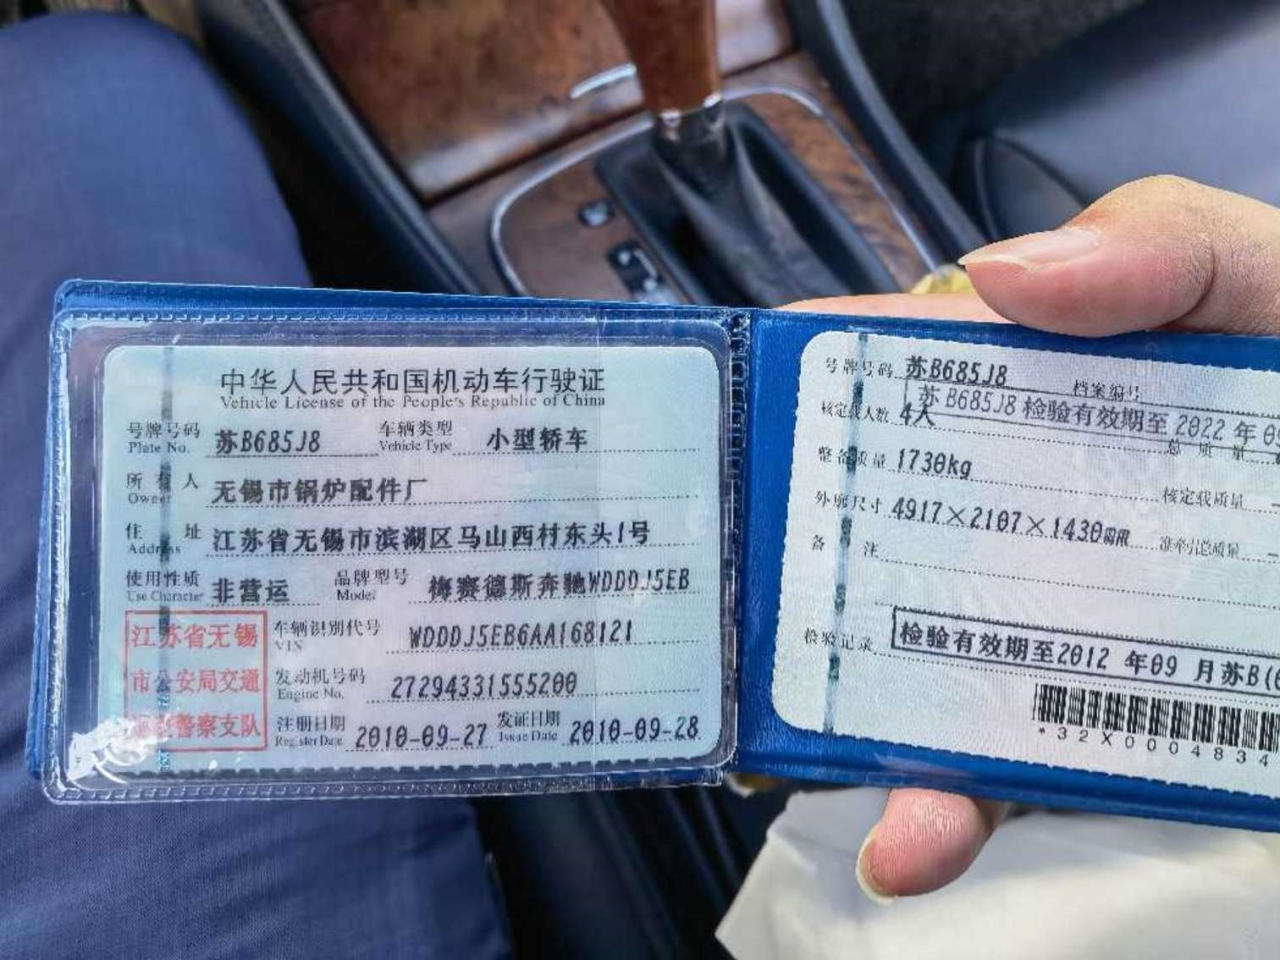 中华人民共和国机动车行驶证
Vehicle License of the People's Republic of China
号牌号码 苏B685J8 车辆类型 小型轿车
Plate No. Vehicle Type
所有人 无锡市锅炉配件厂
Owner
住址 江苏省无锡市滨湖区马山西村东头1号
Address
使用性质 非营运 品牌型号 梅赛德斯奔驰WDDDJ5EB
Use Character Model
江苏省无锡
市公安局交通
警察支队
车辆识别代号 WDDDJ5EB6AA168121
VIN
发动机号码 27294331555200
Engine No.
注册日期 2010-09-27 发证日期 2010-09-28
Register Date Issue Date
号牌号码 苏B685J8 档案编号
苏B685J8检验有效期至2022年
核定载人数 4人 总质量
整备质量 1730kg 核定载质量
外廓尺寸 4917×2107×1430mm 准牵引总质量
备注
检验记录 检验有效期至2012年09月苏B(
*32X0004834